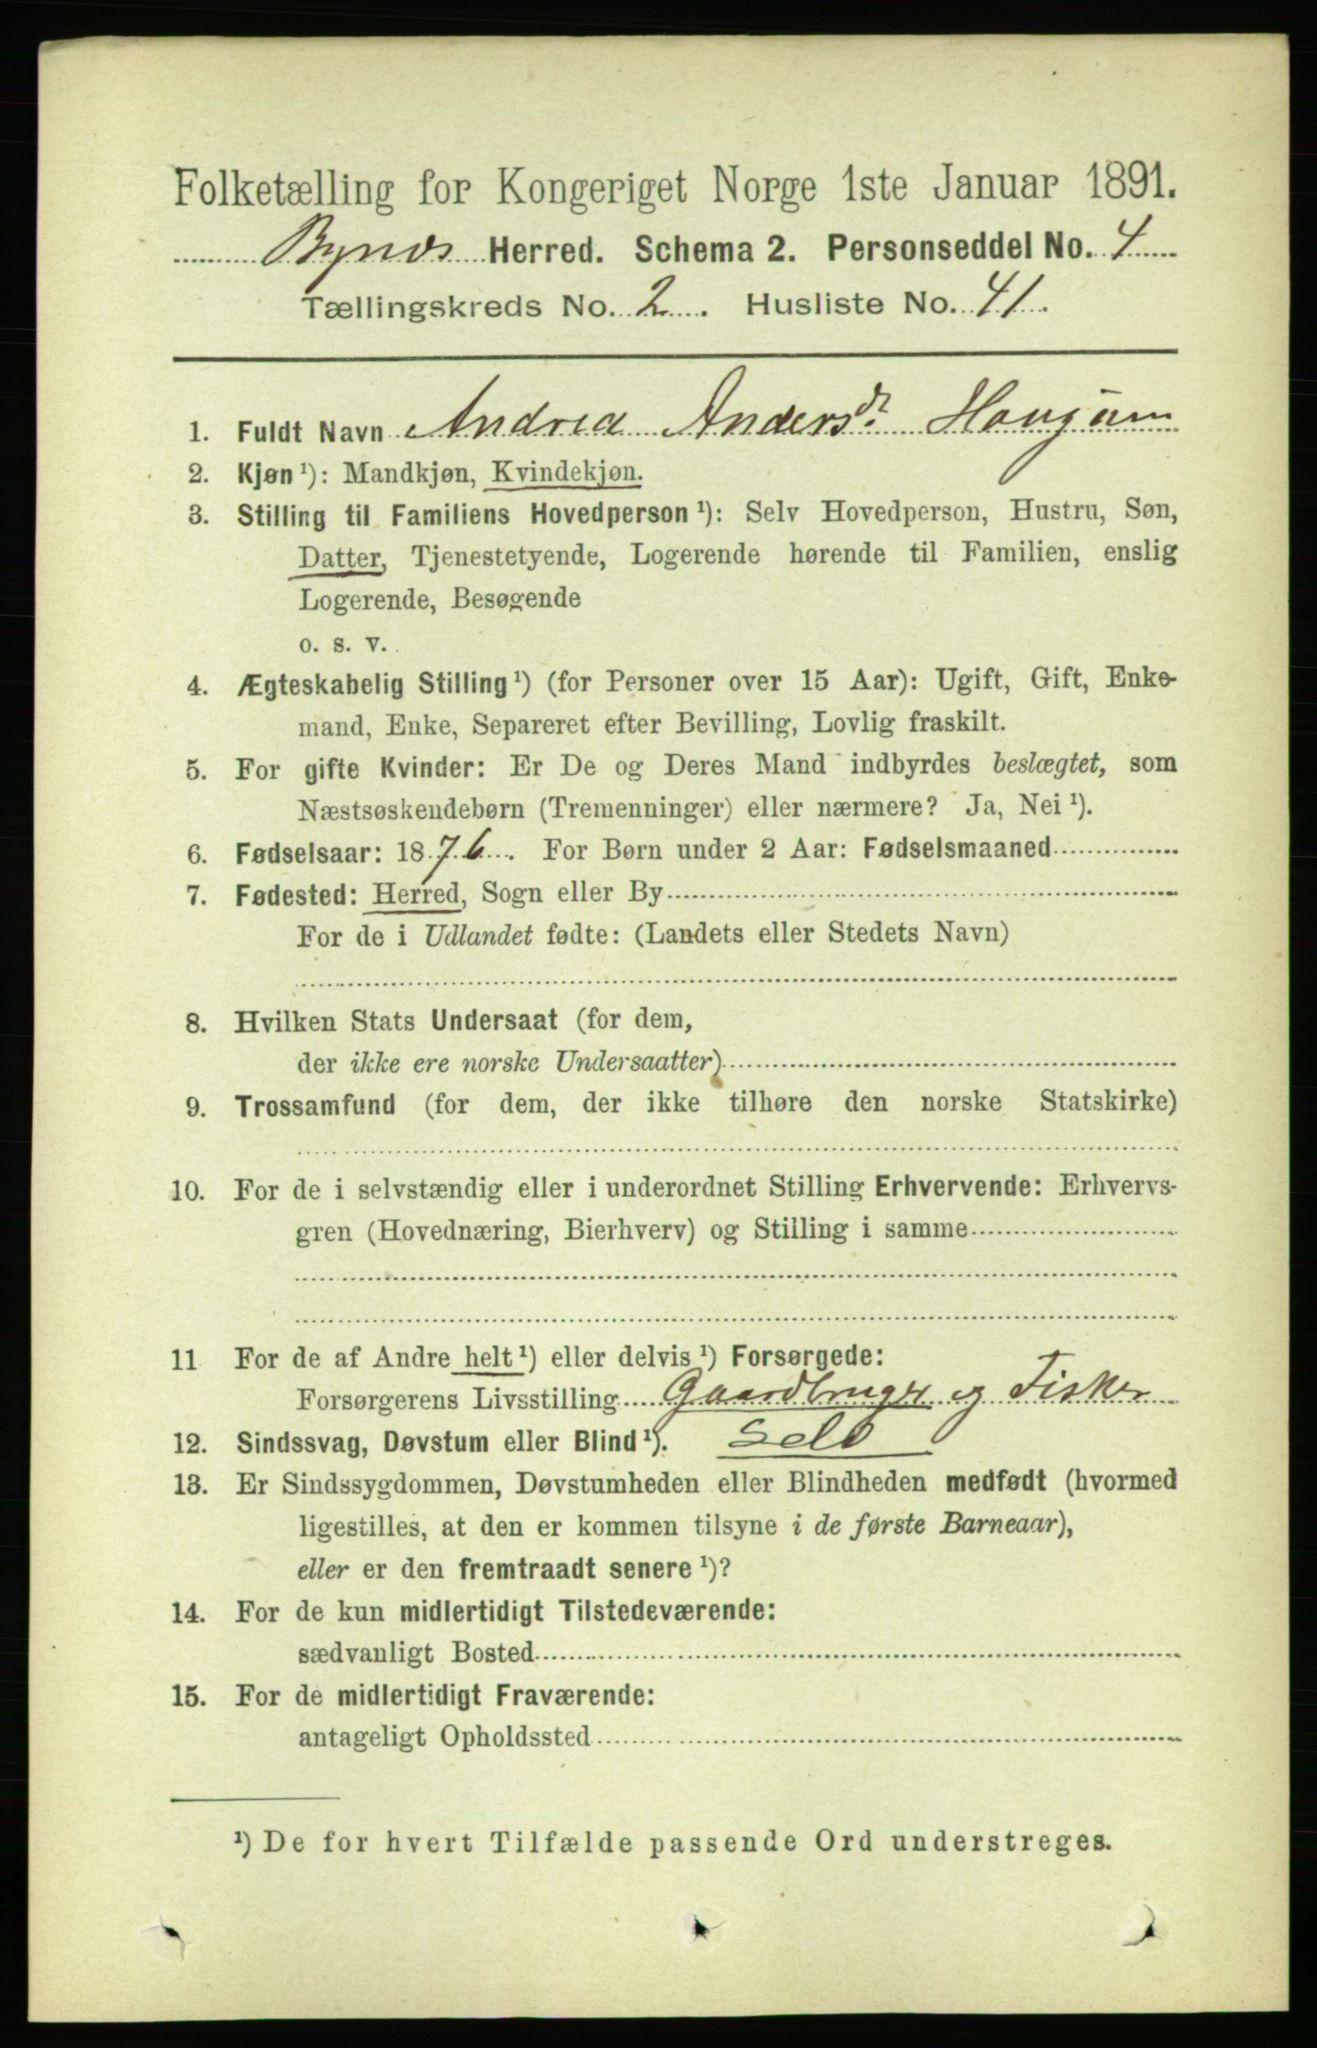 Folketælling for Kongeriget Norge 1ste Januar 1891.
Bynæs Herred. Schema 2. Personseddel No. 4
Tællingskreds No. 2. Husliste No. 41.
1. Fuldt Navn Andrea Andersdr
2. Kjøn¹): Mandkjøn, Kvindekjøn.
3. Stilling til Familiens Hovedperson¹): Selv Hovedperson, Hustru, Søn,
Datter, Tjenestetyende, Logerende hørende til Familien, enslig
Logerende, Besøgende
o. s. v.
4. Ægteskabelig Stilling¹) (for Personer over 15 Aar): Ugift, Gift, Enke-
mand, Enke, Separeret efter Bevilling, Lovlig fraskilt.
5. For gifte Kvinder: Er De og Deres Mand indbyrdes beslægtet, som
Næstsøskendebørn (Tremenninger) eller nærmere? Ja, Nei¹).
6. Fødselsaar: 1876. For Børn under 2 Aar: Fødselsmaaned
7. Fødested: Herred, Sogn eller By
For de i Udlandet fødte: (Landets eller Stedets Navn)
8. Hvilken Stats Undersaat (for dem,
der ikke ere norske Undersaatter)
9. Trossamfund (for dem, der ikke tilhøre den norske Statskirke)
10. For de i selvstændig eller i underordnet Stilling Erhvervende: Erhvervs-
gren (Hovednæring, Bierhverv) og Stilling i samme
11 For de af Andre helt¹) eller delvis¹) Forsørgede:
Forsørgerens Livsstilling Gaardbruger og Fisker
12. Sindssvag, Døvstum eller Blind¹). Selv
13. Er Sindssygdommen, Døvstumheden eller Blindheden medfødt (hvormed
ligestilles, at den er kommen tilsyne i de første Barneaar),
eller er den fremtraadt senere¹)?
14. For de kun midlertidigt Tilstedeværende:
sædvanligt Bosted
15. For de midlertidigt Fraværende:
antageligt Opholdssted
¹) De for hvert Tilfælde passende Ord understreges.